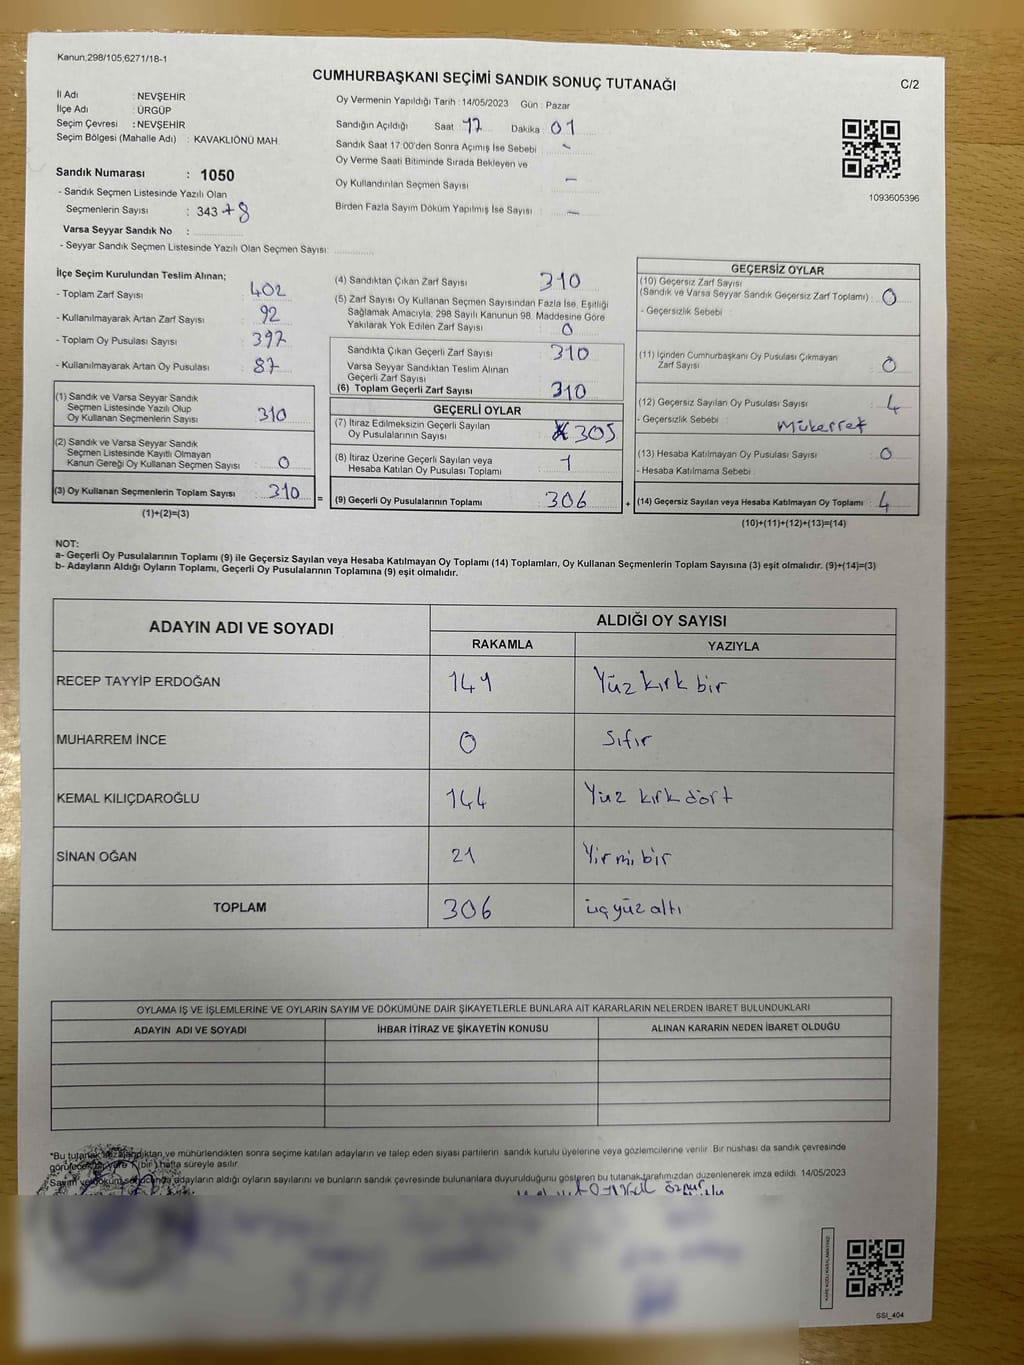 Kanun,298/105,6271/18-1
CUMHURBAŞKANI SEÇİMİ SANDIK SONUÇ TUTANAĞI
C/2
İl Adı : NEVŞEHİR
İlçe Adı : ÜRGÜP
Seçim Çevresi : NEVŞEHİR
Seçim Bölgesi (Mahalle Adı) : KAVAKLIÖNÜ MAH.
Oy Vermenin Yapıldığı Tarih : 14/05/2023 Gün : Pazar
Sandığın Açıldığı Saat : 17 Dakika : 01
Sandık Saat 17:00'den Sonra Açımış İse Sebebi : -
Oy Verme Saati Bitiminde Sırada Bekleyen ve
Oy Kullandırılan Seçmen Sayısı : -
Birden Fazla Sayım Döküm Yapılmış İse Sayısı : -
1093605396
Sandık Numarası : 1050
- Sandık Seçmen Listesinde Yazılı Olan
Seçmenlerin Sayısı : 343 +8
Varsa Seyyar Sandık No :
- Seyyar Sandık Seçmen Listesinde Yazılı Olan Seçmen Sayısı:
İlçe Seçim Kurulundan Teslim Alınan;
- Toplam Zarf Sayısı : 402
- Kullanılmayarak Artan Zarf Sayısı : 92
- Toplam Oy Pusulası Sayısı : 397
- Kullanılmayarak Artan Oy Pusulası : 87
(1) Sandık ve Varsa Seyyar Sandık
Seçmen Listesinde Yazılı Olup
Oy Kullanan Seçmenlerin Sayısı : 310
(2) Sandık ve Varsa Seyyar Sandık
Seçmen Listesinde Kayıtlı Olmayan
Kanun Gereği Oy Kullanan Seçmen Sayısı : 0
(3) Oy Kullanan Seçmenlerin Toplam Sayısı : 310
(1)+(2)=(3)
=
(4) Sandıktan Çıkan Zarf Sayısı : 310
(5) Zarf Sayısı Oy Kullanan Seçmen Sayısından Fazla İse, Eşitliği
Sağlamak Amacıyla, 298 Sayılı Kanunun 98. Maddesine Göre
Yakılarak Yok Edilen Zarf Sayısı : 0
Sandıkta Çıkan Geçerli Zarf Sayısı : 310
Varsa Seyyar Sandıktan Teslim Alınan
Geçerli Zarf Sayısı :
(6) Toplam Geçerli Zarf Sayısı : 310
GEÇERLİ OYLAR
(7) İtiraz Edilmeksizin Geçerli Sayılan
Oy Pusulalarının Sayısı : 305
(8) İtiraz Üzerine Geçerli Sayılan veya
Hesaba Katılan Oy Pusulası Toplamı : 1
(9) Geçerli Oy Pusulalarının Toplamı : 306
+
GEÇERSİZ OYLAR
(10) Geçersiz Zarf Sayısı
(Sandık ve Varsa Seyyar Sandık Geçersiz Zarf Toplamı) : 0
- Geçersizlik Sebebi :
(11) İçinden Cumhurbaşkanı Oy Pusulası Çıkmayan
Zarf Sayısı : 0
(12) Geçersiz Sayılan Oy Pusulası Sayısı : 4
- Geçersizlik Sebebi : Mükerrer
(13) Hesaba Katılmayan Oy Pusulası Sayısı : 0
- Hesaba Katılmama Sebebi :
(14) Geçersiz Sayılan veya Hesaba Katılmayan Oy Toplamı : 4
(10)+(11)+(12)+(13)=(14)
NOT:
a- Geçerli Oy Pusulalarının Toplamı (9) ile Geçersiz Sayılan veya Hesaba Katılmayan Oy Toplamı (14) Toplamları, Oy Kullanan Seçmenlerin Toplam Sayısına (3) eşit olmalıdır. (9)+(14)=(3)
b- Adayların Aldığı Oyların Toplamı, Geçerli Oy Pusulalarının Toplamına (9) eşit olmalıdır.
ADAYIN ADI VE SOYADI
ALDIĞI OY SAYISI
RAKAMLA YAZIYLA
RECEP TAYYİP ERDOĞAN 141 Yüz kırk bir
MUHARREM İNCE 0 Sıfır
KEMAL KILIÇDAROĞLU 144 Yüz kırk dört
SİNAN OĞAN 21 Yirmi bir
TOPLAM 306 üç yüz altı
OYLAMA İŞ VE İŞLEMLERİNE VE OYLARIN SAYIM VE DÖKÜMÜNE DAİR ŞİKAYETLERLE BUNLARA AİT KARARLARIN NELERDEN İBARET BULUNDUKLARI
ADAYIN ADI VE SOYADI İHBAR İTİRAZ VE ŞİKAYETİN KONUSU ALINAN KARARIN NEDEN İBARET OLDUĞU
*Bu tutanak imzalandıktan ve mühürlendikten sonra seçime katılan adayların ve talep eden siyasi partilerin sandık kurulu üyelerine veya gözlemcilerine verilir. Bir nüshası da sandık çevresinde
görülecek bir yere 1 (bir) hafta süreyle asılır.
Sayım ve döküm sonucunda adayların aldığı oyların sayılarını ve bunların sandık çevresinde bulunanlara duyurulduğunu gösteren bu tutanak tarafımızdan düzenlenerek imza edildi. 14/05/2023
SSI_404